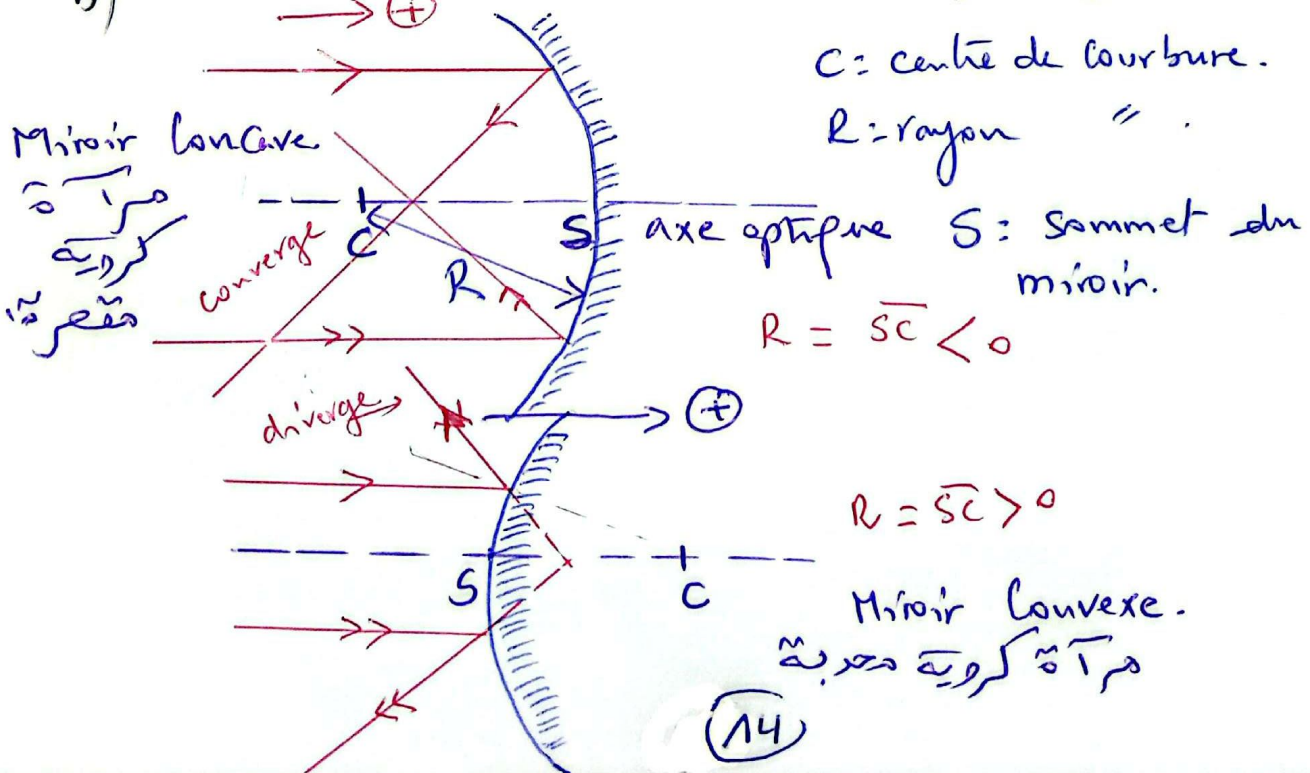 b)
→ (+)
C = centre de Courbure.
R = rayon " .
Miroir Concave
مرآة
كروية
مقعرة
converge
C
R
S
axe optique
S : Sommet du
miroir.
R = SC̅ < 0
diverge
(+)
R = SC̅ > 0
S
C
Miroir Convexe.
مرآة كروية محدبة
14